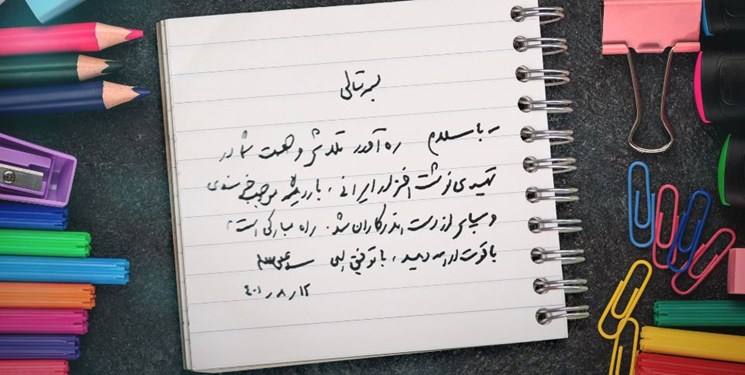 بسمه تعالی
- با سلام ره آورد تلاش و همت شما در
تهیه ی نوشت افزار ایرانی، بار دیگر موجب خرسندی
و سپاس از دست اندرکاران شد. راه مبارکی است
با قوت ادامه دهید، با توفیق الهی
۴۰۱٫۸٫۱۲